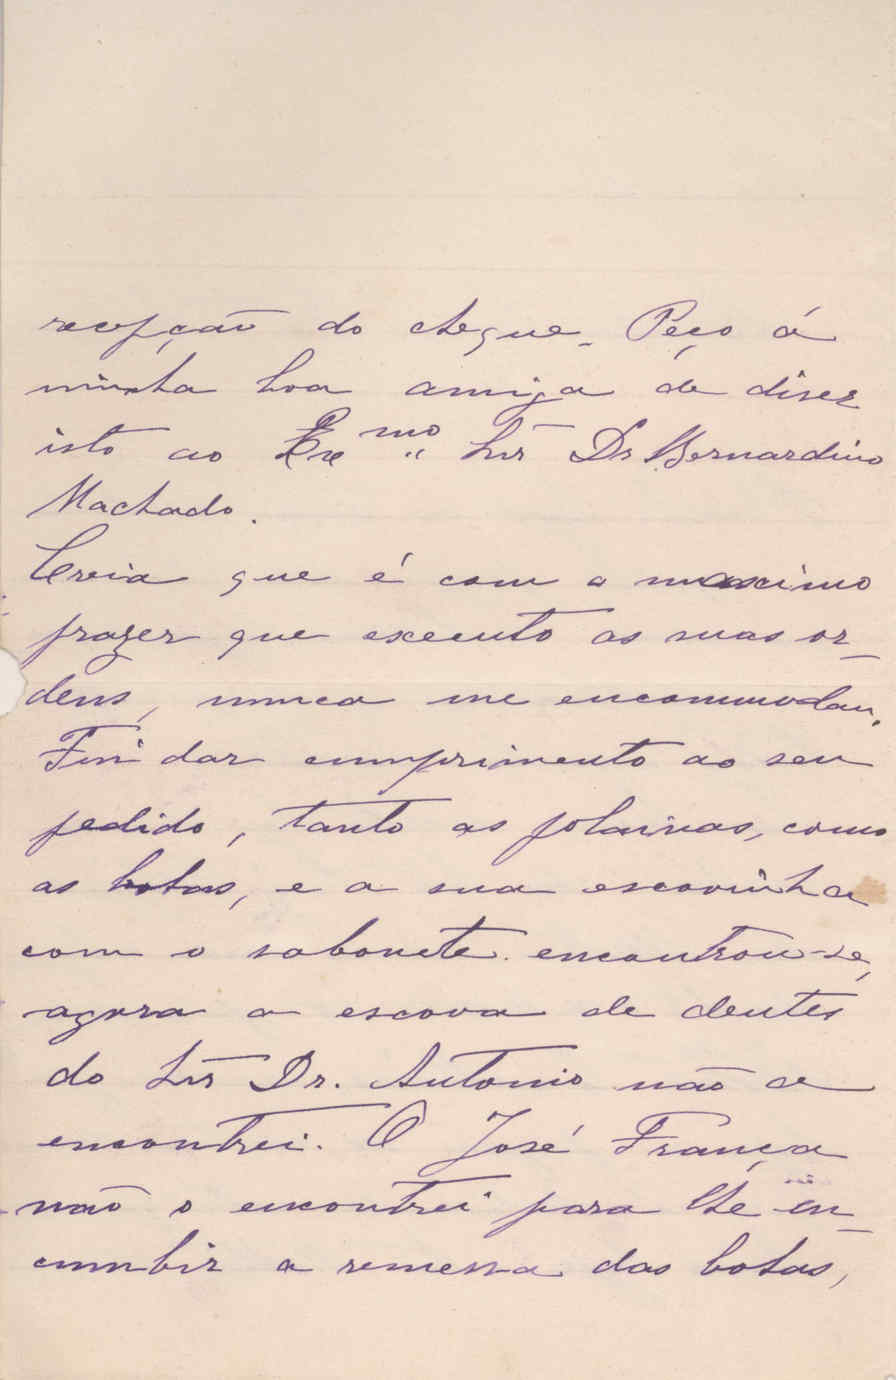 recepção do cheque. Peço á
minha boa amiga de diser
isto ao Exmo Snr Dr Bernardino
Machado.
Creia que é com o maximo
prazer que executo as suas or-
dens, nunca me encommodam.
Fui dar cumprimento ao seu
pedido, tanto as polainas, como
as botas, e a sua escovinha
com o sabonete encontrou-se,
agora a escova de dentes
do Snr Dr. Antonio não a
encontrei. O José França
não o encontrei para lhe en-
cumbir a remessa das botas,